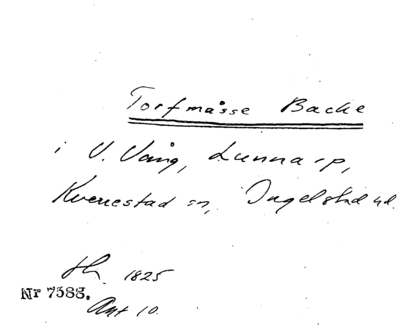 Torfmåsse Backe
i V. Vång, Lunnarp,
Kverrestad sn, Ingelstad hd.
Sk. 1825
Nr 7583.
Ant 10.